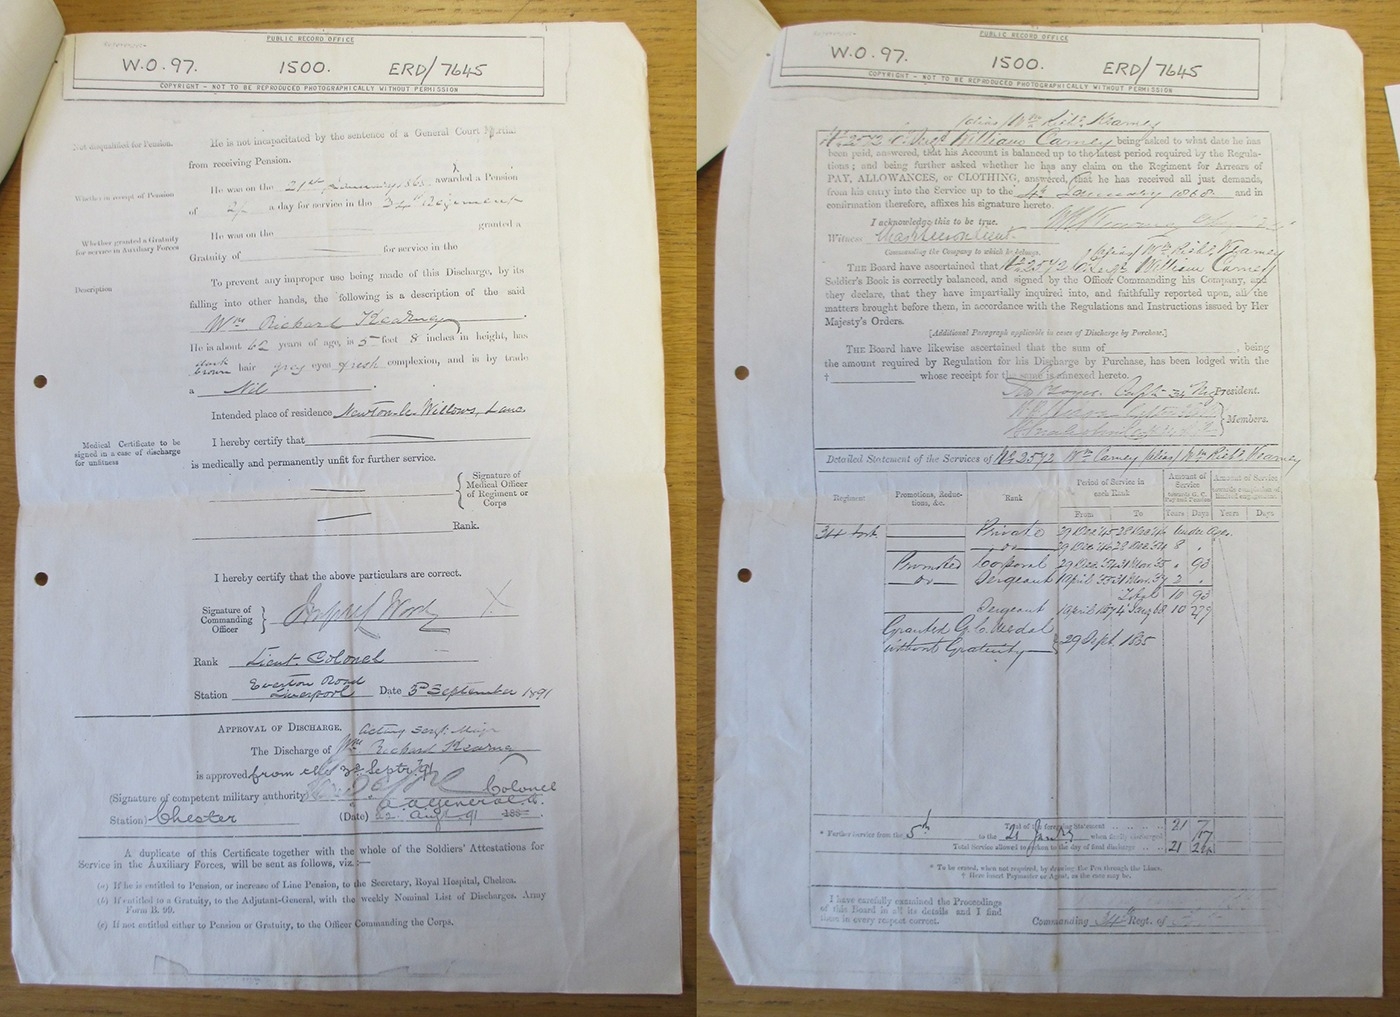 PUBLIC RECORD OFFICE
W.O. 97. 1500. ERD/7645
COPYRIGHT - NOT TO BE REPRODUCED PHOTOGRAPHICALLY WITHOUT PERMISSION
Not disqualified for Pension.
He is not incapacitated by the sentence of a General Court Martial
from receiving Pension.
Whether in receipt of Pension
He was on the 21st January 1868 awarded a Pension
of 2/- a day for service in the 34th Regiment
Whether granted a Gratuity
for service in Auxiliary Forces
He was on the granted a
Gratuity of for service in the
Description
To prevent any improper use being made of this Discharge, by its
falling into other hands, the following is a description of the said
Wm Richard Kearney
He is about 62 years of age, is 5 feet 8 inches in height, has
dark brown hair grey eyes fresh complexion, and is by trade
a Nil
Intended place of residence Newton le Willows, Lanc.
Medical Certificate to be
signed in a case of discharge
for unfitness
I hereby certify that
is medically and permanently unfit for further service.
Signature of
Medical Officer
of Regiment or
Corps
Rank.
I hereby certify that the above particulars are correct.
Signature of
Commanding
Officer
Rank Lieut. Colonel
Station Everton Road
Liverpool Date 3rd September 1891
APPROVAL OF DISCHARGE. Acting Sergt. Major
The Discharge of Wm Richard Kearney
is approved from the 3rd Septr. 91
Colonel
(Signature of competent military authority)
A A General
Station) Chester (Date) 22 Augt 91 188
A duplicate of this Certificate together with the whole of the Soldiers' Attestations for
Service in the Auxiliary Forces, will be sent as follows, viz.:—
(a) If he is entitled to Pension, or increase of Line Pension, to the Secretary, Royal Hospital, Chelsea.
(b) If entitled to a Gratuity, to the Adjutant-General, with the weekly Nominal List of Discharges. Army
Form B. 99.
(c) If not entitled either to Pension or Gratuity, to the Officer Commanding the Corps.
PUBLIC RECORD OFFICE
W.O. 97. 1500. ERD/7645
COPYRIGHT - NOT TO BE REPRODUCED PHOTOGRAPHICALLY WITHOUT PERMISSION
(alias) Wm Richd Kearney
No 2572 William Carney being asked to what date he has
been paid, answered, that his Account is balanced up to the latest period required by the Regula-
tions; and being further asked whether he has any claim on the Regiment for Arrears of
PAY, ALLOWANCES, or CLOTHING, answered, that he has received all just demands,
from his entry into the Service up to the 4th January 1868 and in
confirmation therefore, affixes his signature hereto.
I acknowledge this to be true.
Witness
Commanding the Company to which he belongs.
(alias) Wm Richd Kearney
THE Board have ascertained that No 2572 William Carney
Soldier's Book is correctly balanced, and signed by the Officer Commanding his Company, and
they declare, that they have impartially inquired into, and faithfully reported upon, all the
matters brought before them, in accordance with the Regulations and Instructions issued by Her
Majesty's Orders.
[Additional Paragraph applicable in cases of Discharge by Purchase.]
THE Board have likewise ascertained that the sum of , being
the amount required by Regulation for his Discharge by Purchase, has been lodged with the
† whose receipt for the same is annexed hereto.
Capt. 34 Regt President.
Members.
Detailed Statement of the Services of No 2572 Wm Carney (alias) Wm Richd Kearney
Regiment Promotions, Reduc-
tions, &c. Rank Period of Service in
each Rank Amount of
Service
towards G. C.
Pay and Pension Amount of Service
towards completion of
limited engagement
From To Years Days Years Days
34 foot Private 29 Dec '45 28 Dec '46 Under Age.
do 29 Dec '46 28 Dec '54 8 "
Promoted Corporal 29 Dec. 54 31 Mar. 55 " 93
do Sergeant 1 April 55 31 Mar. 57 2 "
Total 10 93
Sergeant 1 April 1857 4 Jany 68 10 279
Granted G. C. Medal
without Gratuity 29 Sept. 1865
Total of the foregoing Statement 21 7
* Further service from the 5th to the 21 Jany when finally discharged 17
Total Service allowed to reckon to the day of final discharge 21 24
* To be erased, when not required, by drawing the Pen through the Lines.
† Here insert Paymaster or Agent, as the case may be.
I have carefully examined the Proceedings
of this Board in all its details and I find
them in every respect correct.
Commanding 34th Regt. of